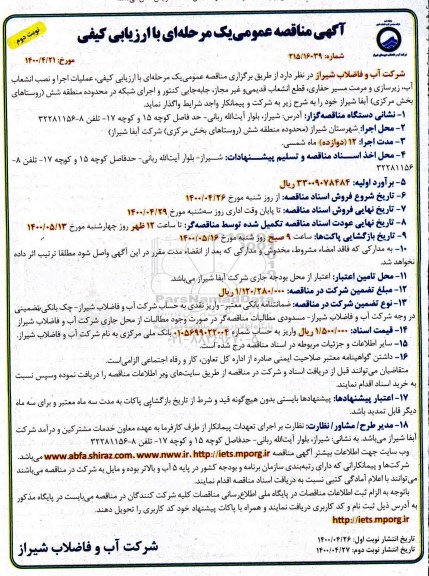 آگهی مناقصه عمومی یک مرحله‌ای با ارزیابی کیفی
نوبت دوم
شماره: ۲۱۵/۱۶۰۳۹
مورخ: ۱۴۰۰/۴/۲۱
شرکت آب و فاضلاب شیراز در نظر دارد از طریق برگزاری مناقصه عمومی یک مرحله‌ای با ارزیابی کیفی، عملیات اجرا و نصب انشعاب
آب، زیرسازی و مرمت مسیر حفاری، قطع انشعاب قدیمی و غیر مجاز، جابه‌جایی کنتور و اجرای شبکه در محدوده منطقه شش (روستاهای
بخش مرکزی) آبفا شیراز خود را به شرح زیر به شرکت و پیمانکار واجد شرایط واگذار نماید.
۱- نشانی دستگاه مناقصه‌گزار: آدرس: شیراز، بلوار آیت‌الله ربانی- حد فاصل کوچه ۱۵ و کوچه ۱۷- تلفن ۸-۳۲۲۸۱۱۵۶
۲- محل اجرا: شهرستان شیراز (محدوده منطقه شش (روستاهای بخش مرکزی) شرکت آبفا شیراز)
۳- مدت اجرا: ۱۲ (دوازده) ماه شمسی.
۴- محل اخذ اسـناد مناقصه و تسلیم پیشـنهادات: شـیراز- بلوار آیت‌الله ربانی- حدفاصل کوچه ۱۵ و کوچه ۱۷- تلفن ۸-
۳۲۲۸۱۱۵۶
۵- برآورد اولیه: ۳۳۰۰۹۰۷۸۴۸۴ ریال
۶- تاریخ شروع فروش اسناد مناقصه: از روز شنبه مورخ ۱۴۰۰/۰۴/۲۶
۷- تاریخ نهایی فروش اسناد مناقصه: تا پایان وقت اداری روز سه‌شنبه مورخ ۱۴۰۰/۰۴/۲۹
۸- تاریخ نهایی عودت اسناد مناقصه تکمیل شده توسط مناقصه‌گر: تا ساعت ۱۲ ظهر روز چهارشنبه مورخ ۱۴۰۰/۰۵/۱۳
۹- تاریخ بازگشایی پاکت‌ها: ساعت ۹ صبح روز شنبه مورخ ۱۴۰۰/۰۵/۱۶
۱۰- به مدارکی که فاقد امضاء مشروط، مخدوش و مدارکی که بعد از انقضاء مدت مقرر در این آگهی واصل شود مطلقا ترتیب اثر داده
نخواهد شد.
۱۱- محل تامین اعتبار: اعتبار از محل بودجه جاری شرکت آبفا شیراز می‌باشد.
۱۲- مبلغ تضمین شرکت در مناقصه: ۱/۱۲۰/۲۸۰/۰۰۰ ریال
۱۳- نوع تضمین شرکت در مناقصه: ضمانتنامه بانکی معتبر- واریز نقدی به حساب شرکت آب و فاضلاب شیراز- چک بانکی تضمینی
در وجه شرکت آب و فاضلاب شیراز- مسدودی مطالبات مناقصه‌گر در صورت وجود مطالبات از محل جاری شرکت آب و فاضلاب شیراز
۱۴- قیمت اسناد: ۱/۵۰۰/۰۰۰ ریال واریز به حساب شماره ۰۱۰۵۶۹۹۰۲۲۰۰۴ بانک ملی مرکزی به نام شرکت آب و فاضلاب شیراز.
۱۵- سایر اطلاعات و جزئیات مربوطه در اسناد مناقصه درج شده است.
۱۶- داشتن گواهینامه معتبر صلاحیت ایمنی صادره از اداره کل تعاون، کار و رفاه اجتماعی الزامی‌است.
متقاضیان می‌توانند قبل از دریافت اسناد و شرکت در مناقصه از طریق سایت‌های زیر اطلاعات مناقصه را دریافت نموده وسپس نسبت
به خرید اسناد اقدام نمایند.
۱۷- اعتبار پیشنهادها: پیشنهادها بایستی بدون هیچ‌گونه قید و شرط از تاریخ بازگشایی پاکات به مدت سه ماه معتبر و برای سه ماه
دیگر قابل تمدید باشد.
۱۸- مدیر طرح/ مشاور/ نظارت: نظارت بر اجرای تعهدات پیمانکار از طرف کارفرما به عهده معاون خدمات مشترکین و درآمد شرکت
آبفا شیراز می‌باشد. به نشانی: شیراز، بلوار آیت‌الله ربانی- حدفاصل کوچه ۱۵ و کوچه ۱۷- تلفن ۸-۳۲۲۸۱۱۵۶
وب سایت جهت اطلاعات بیشتر آگهی مناقصه www.abfa.shiraz.com، www.nww.ir، http://iets.mporg.ir می‌باشد.
شرکت‌ها و پیمانکارانی که دارای رتبه‌بندی سازمان برنامه و بودجه کشور در پایه ۵ آب و بالاتر بوده و مایل به شرکت در مناقصه می‌باشند
می‌توانند با اعلام آمادگی کتبی نسبت به دریافت اسناد مناقصه اقدام نمایند.
باتوجه به الزام ثبت اطلاعات مناقصات در پایگاه ملی اطلاع‌رسانی مناقصات کلیه شرکت کنندگان در مناقصه می‌بایست در پایگاه مذکور
به آدرس ذیل ثبت نام و کد کاربری دریافت نمایند و همراه با پاکات پیشنهاد خود کد کاربری را تحویل دهند.
http://iets.mporg.ir
تاریخ انتشار نوبت اول: ۱۴۰۰/۰۴/۲۶
تاریخ انتشار نوبت دوم: ۱۴۰۰/۰۴/۲۷
شرکت آب و فاضلاب شیراز